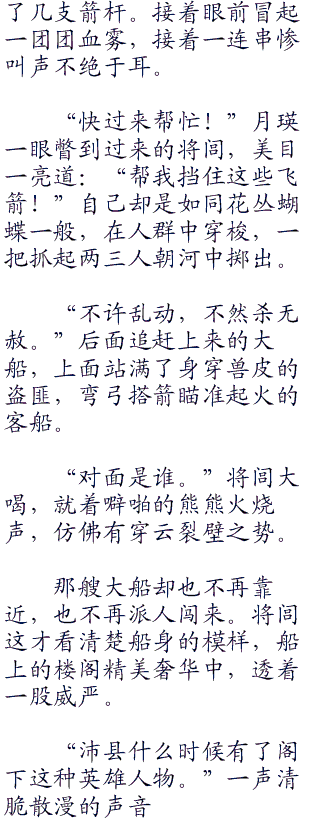 了几支箭杆。接着眼前冒起
一团团血雾，接着一连串惨
叫声不绝于耳。
“快过来帮忙！”月瑛
一眼瞥到过来的将闾，美目
一亮道：“帮我挡住这些飞
箭！”自己却是如同花丛蝴
蝶一般，在人群中穿梭，一
把抓起两三人朝河中掷出。
“不许乱动，不然杀无
赦。”后面追赶上来的大
船，上面站满了身穿兽皮的
盗匪，弯弓搭箭瞄准起火的
客船。
“对面是谁。”将闾大
喝，就着噼啪的熊熊火烧
声，仿佛有穿云裂壁之势。
那艘大船却也不再靠
近，也不再派人闯来。将闾
这才看清楚船身的模样，船
上的楼阁精美奢华中，透着
一股威严。
“沛县什么时候有了阁
下这种英雄人物。”一声清
脆散漫的声音